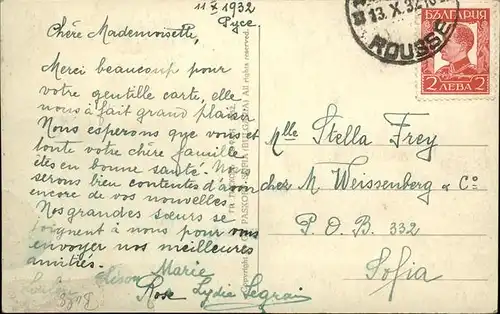 11 X 1932
Русе
Chère Mademoiselle,
Merci beaucoup pour
votre gentille carte, elle
nous à fait grand plaisir
Nous esperons que vous et
toute votre chère famille
êtes en bonne santé. Nous
serons bien contentes d'avoir
encore de vos nouvelles
Nos grandes sœurs se
joignent à nous pour vous
envoyer nos meilleures
amitiés.
Marie
Rose Lydie
Mlle Stella Frey
chez M. Weissenberg & Co
P. O. B. 332
Sofia
13. X. 32
ROUSSE
БЪЛГАРИЯ
2 ЛЕВА 2
Copyright
PASKOV
(BULGARIA) All rights reserved